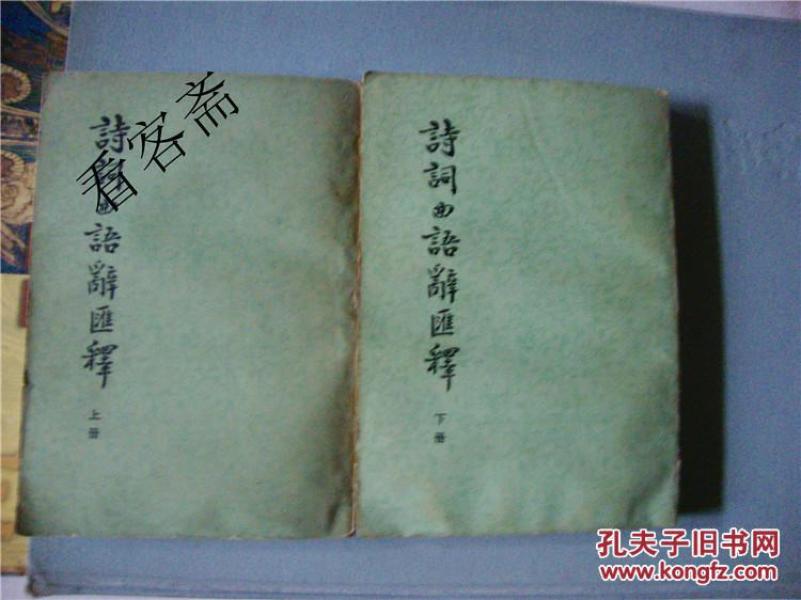 詩詞曲語辭匯釋
上册
看客斋
詩詞曲語辭匯釋
下册
孔夫子旧书网
www.kongfz.com